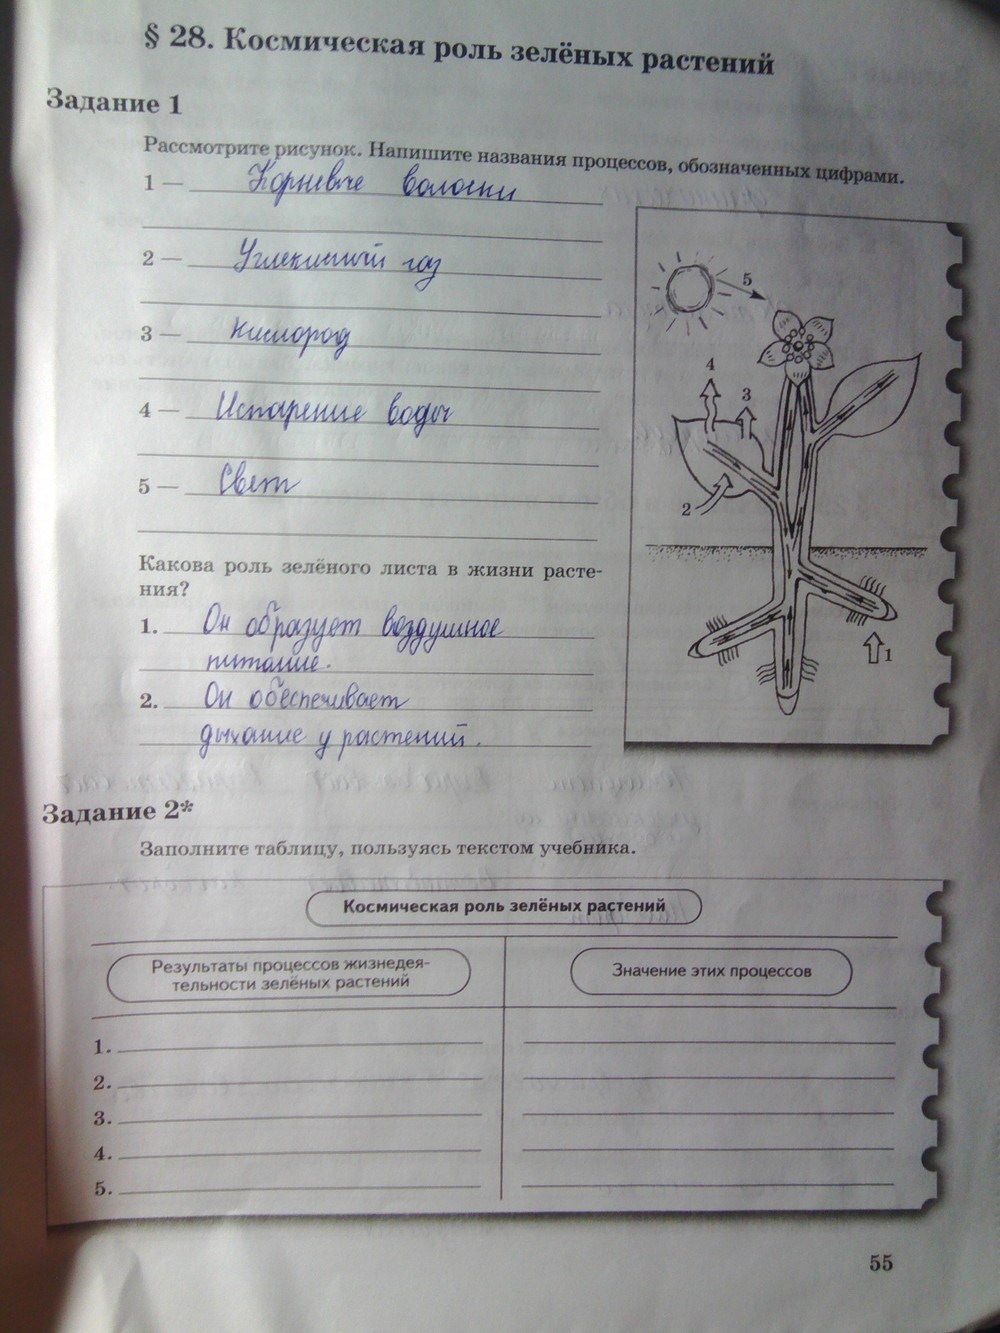 § 28. Космическая роль зелёных растений
Задание 1
Рассмотрите рисунок. Напишите названия процессов, обозначенных цифрами.
1 — Корневые волоски
2 — Углекислый газ
3 — кислород
4 — Испарение воды
5 — Свет
5
4
3
2
1
Какова роль зелёного листа в жизни расте-
ния?
1. Он образует воздушное
питание.
2. Он обеспечивает
дыхание у растений.
Задание 2*
Заполните таблицу, пользуясь текстом учебника.
Космическая роль зелёных растений
Результаты процессов жизнедея-
тельности зелёных растений
Значение этих процессов
1.
2.
3.
4.
5.
55